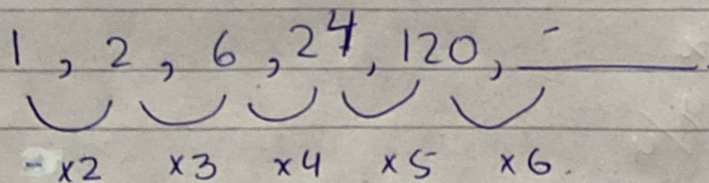 1, 2, 6, 24, 120, ______.
×2 ×3 ×4 ×5 ×6.